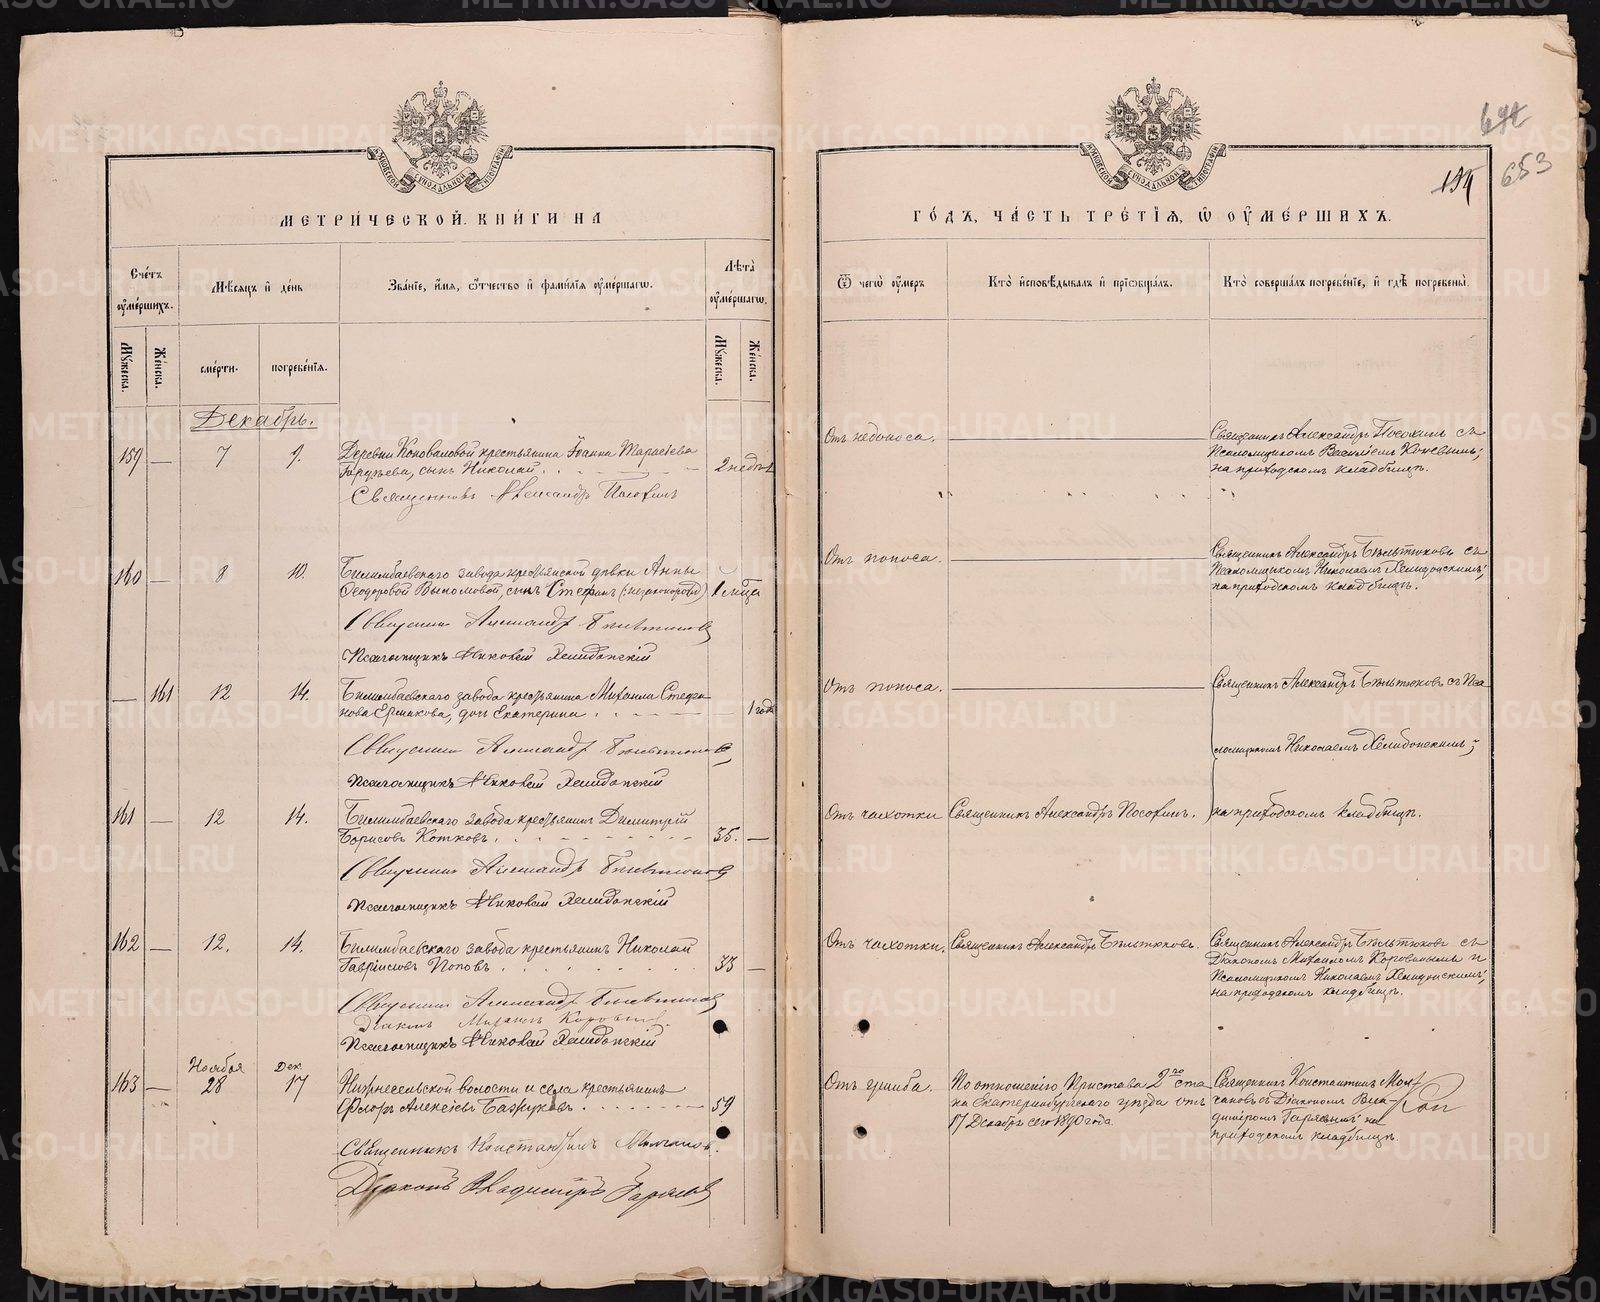 694
194
653
МЕТРИЧЕСКОЙ КНИГИ НА
ГОДЪ, ЧАСТЬ ТРЕТІЯ, Ѿ ОУМЕРШИХЪ.
Счетъ
оумершихъ.
Мѣсяцъ и день
Званіе, имя, отчество и фамилія оумершагѡ.
Лѣта
оумершагѡ.
Ѿ чегѡ оумеръ
Кто исповѣдывалъ и пріѡбщалъ.
Кто совершалъ погребеніе, и гдѣ погребены.
Мужеска.
Женска.
смерти.
погребенія.
Мужеска.
Женска.
Декабрь.
159 — 7 9. Деревни Коноваловой крестьянина Іоанна Тарасіева
сынъ Николай 2 недѣл
Священникъ Александръ Посохинъ
Отъ недоноса.
Священникъ Александръ Посохинъ съ
Псаломщикомъ Василіемъ
на приходскомъ кладбищѣ.
160 — 8 10. Билимбаевскаго завода крестьянской дѣвки Анны
Ѳеодоровой сынъ Стефанъ (незаконорожд) 1 мѣца
Священникъ Александръ Бѣльтюковъ
Псаломщикъ Николай Хелидонскій
Отъ поноса.
Священникъ Александръ Бѣльтюковъ съ
Псаломщикомъ Николаемъ Хелидонскимъ;
на приходскомъ кладбищѣ.
— 161 12 14. Билимбаевскаго завода крестьянина Михаила Стефа-
нова Ермакова, дочь Екатерина — 1 года
Священникъ Александръ Бѣльтюковъ
Псаломщикъ Николай Хелидонскій
Отъ поноса.
Священникъ Александръ Бѣльтюковъ съ Пса
ломщикомъ Николаемъ Хелидонскимъ;
на приходскомъ кладбищѣ.
161 — 12 14. Билимбаевскаго завода крестьянинъ Димитрій
Борисовъ Котковъ. 35. —
Священникъ Александръ Бѣльтюковъ
Псаломщикъ Николай Хелидонскій
Отъ чахотки
Священникъ Александръ Посохинъ.
162 — 12. 14. Билимбаевскаго завода крестьянинъ Николай
Гавріиловъ Поповъ. 33 —
Священникъ Александръ Бѣльтюковъ
Діаконъ Михаилъ Коровинъ.
Псаломщикъ Николай Хелидонскій
Отъ чахотки.
Священникъ Александръ Бѣльтюковъ.
Священникъ Александръ Бѣльтюковъ съ
Діакономъ Михаиломъ Коровинымъ и
Псаломщикомъ Николаемъ Хелидонскимъ;
на приходскомъ кладбищѣ.
Ноября Дек.
163 — 28 17 Нижнесельской волости и села крестьянинъ
Флоръ Алексіевъ Бажуковъ. 59
Священникъ Константинъ
Діаконъ Владиміръ Гаряевъ
По отношенію Пристава 2го ста
на Екатеринбургскаго уѣзда отъ
17 Декабря сего 1890 года.
Священникъ Константинъ
съ Діакономъ Вла-
диміромъ Гаряевымъ на
приходскомъ кладбищѣ.